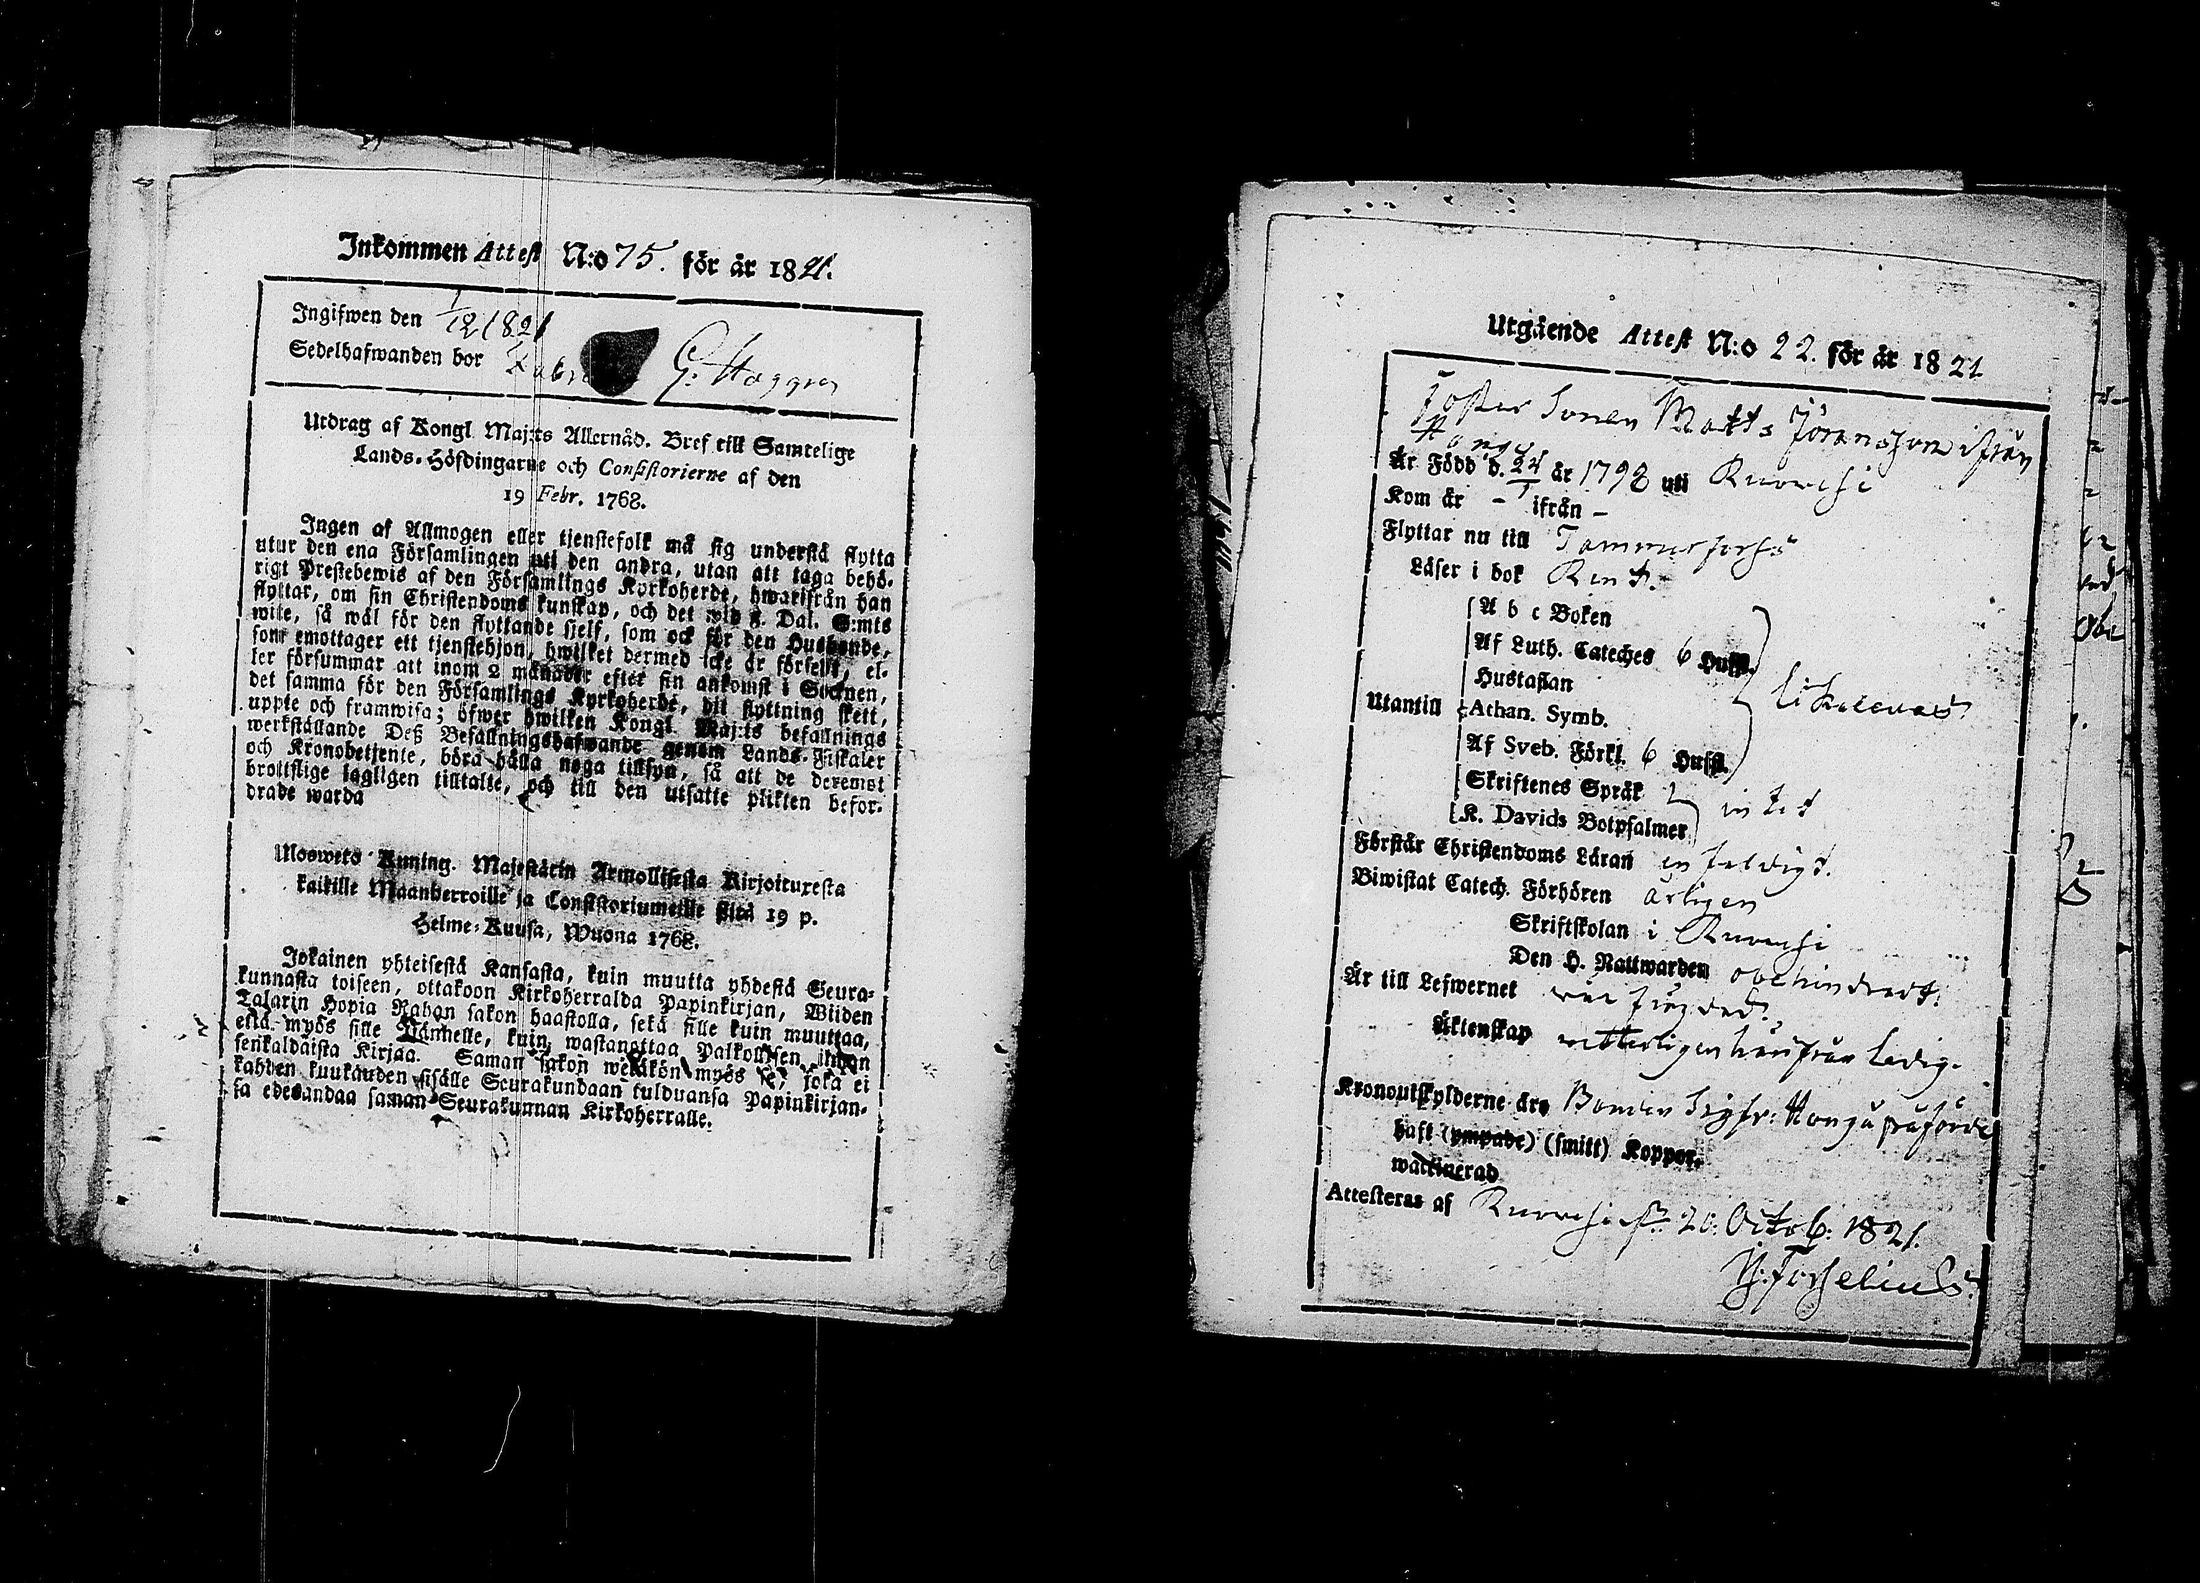 Inkommen Attest N:o 75. för år 1821.
Ingifwen den 1/12 1821
Sedelhafwanden bor G: Haggren
Utdrag af Kongl. Maj:ts Allernåd. Bref till Samtelige
Lands-Höfdingarne och Consistorierne af den
19 Febr. 1768.
Ingen af Allmogen eller tjenstefolk må sig understå flytta
utur den ena Församlingen uti den andra, utan att taga behö-
rigt Prestebewis af den Församlings Kyrkoherde, hwarifrån han
flyttar, om sin Christendoms kunskap, och det wid 5. Dal. S:mts
wite, så wäl för den flyttande sjelf, som ock för den Husbonde,
som emottager ett tjenstehjon, hwilket dermed icke är försedt, el-
ler försummar att inom 2 månader efter sin ankomst i Socknen,
det samma för den Församlings Kyrkoherde, dit flyttning skett,
uppte och framwisa; öfwer hwilken Kongl. Maj:ts befallnings
werkställande Deß Befallningshafwande genom Lands-Fiskaler
och Kronobetjente, böra hålla noga tillsyn, så att de deremot
brottslige lagligen tilltalte, och till den utsatte plikten befor-
drade warda
Ulosweto Kuning. Majestätin Armollisesta Kirjoituxesta
kaikille Maanherroille ja Consistoriumeille sitä 19 p.
Helme-Kuusa, Wuona 1768.
Jokainen yhteisestä Kansasta, kuin muutta yhdestä Seura-
kunnasta toiseen, ottakoon Kirkoherralda Papinkirjan, Wiiden
Talarin Hopia Rahan sakon haastolla, sekä sille kuin muuttaa,
että myös sille Isännelle, kuin wastanottaa Palkollisen ilman
senkaldaista Kirjaa. Saman sakon wetäkön myös se, joka ei
kahden kuukauden sisälle Seurakundaan tulduansa Papinkirjan-
sa edesandaa saman Seurakunnan Kirkoherralle.
Utgående Attest N:o 22. för år 1821
Foster Sonen Matts Jöransson ifrån
Hongu
Är Född d. 24 år 1798 uti Ruovesi
Kom år - ifrån -
Flyttar nu till Tammerfors
Läser i bok Rent.
A b c Boken
Af Luth. Cateches 6 Hufst.
Hustaflan
Utantill Athan. Symb. likaledes
Af Sveb. Förkl. 6 Hufst.
Skriftenes Språk intet
K. Davids Botpsalmer
Förstår Christendoms Läran enfaldigt.
Biwistat Catech. Förhören årligen
Skriftskolan i Ruovesi
Den H. Nattwarden obehindradt.
Är till Lefwernet
Äktenskap wetterligen härifrån ledig.
Kronoutskylderne äro Bonden Sigfr: Hongu påförde
haft (ympade) (smitt) Koppor.
waccinerad
Attesteras af Ruovesi 20: Octob: 1821.
Forselius.